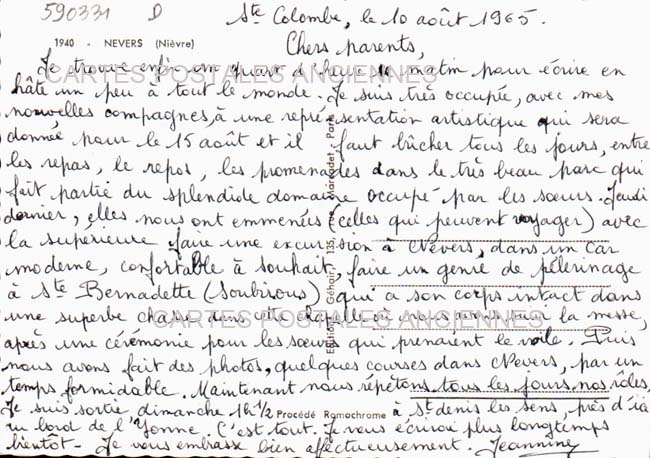 590331 D
Ste Colombe, le 10 août 1965.
1940 - NEVERS (Nièvre)
Chers parents,
Je trouve enfin un quart d'heure ce matin pour écrire en
CARTES POSTALES ANCIENNES
hâte un peu à tout le monde. Je suis très occupée, avec mes
nouvelles compagnes, à une représentation artistique qui sera
donnée pour le 15 août et il faut bûcher tous les jours, entre
les repas, le repos, les promenades dans le très beau parc qui
fait partie du splendide domaine occupé par les sœurs. Jeudi
dernier, elles nous ont emmenées (celles qui peuvent voyager) avec
la supérieure faire une excursion à Nevers, dans un car
moderne, confortable à souhait, faire un genre de pélerinage
à Ste Bernadette (Soubirous) qui a son corps intact dans
une superbe chasse dans cette chapelle où nous avons eu la messe,
CARTES POSTALES ANCIENNES
après une cérémonie pour les sœurs qui prenaient le voile. Puis
nous avons fait des photos, quelques courses dans Nevers, par un
temps formidable. Maintenant nous répétons tous les jours nos rôles.
Je suis sortie dimanche 1h 1/2 à St denis les sens, près d'ici
Procédé Ramochrome
au bord de l'Yonne. C'est tout. Je vous écrirai plus longtemps
bientôt - Je vous embrasse bien affectueusement. Jeannine
Editions Géhair, 135, rue Marcadet - Paris